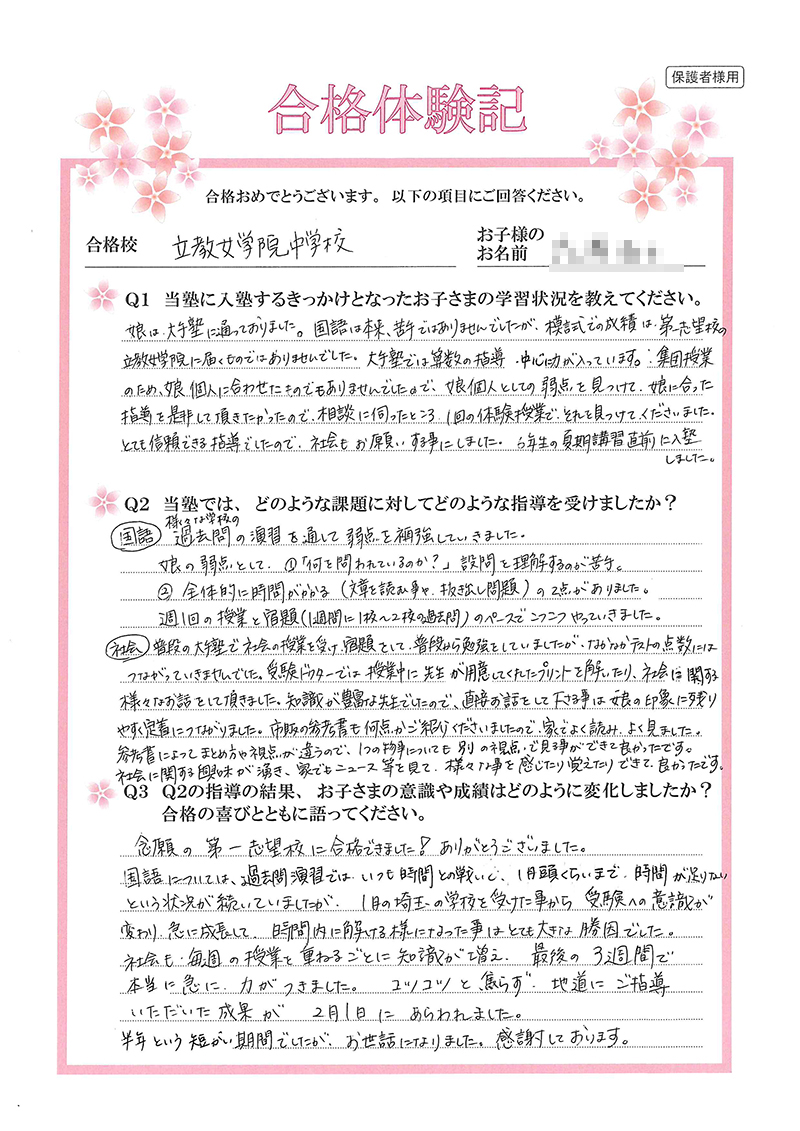 保護者様用
合格体験記
合格おめでとうございます。 以下の項目にご回答ください。
合格校 立教女学院中学校
お子様の
お名前
Q1 当塾に入塾するきっかけとなったお子さまの学習状況を教えてください。
娘は、大手塾に通っておりました。国語は本来、苦手ではありませんでしたが、模試での成績は、第一志望校の
立教女学院に届くものではありませんでした。大手塾では算数の指導 中心に力が入っています。集団授業
のため、娘個人に合わせたものでもありませんでしたので、娘個人としての弱点を見つけて、娘に合った
指導を是非して頂きたかったので、相談に伺ったところ、1回の体験授業で、それを見つけてくださいました。
とても信頼できる指導でしたので、社会もお願いする事にしました。6年生の夏期講習直前に入塾
しました。
Q2 当塾では、どのような課題に対してどのような指導を受けましたか？
様々な学校の
国語 過去問の演習を通して弱点を補強していきました。
娘の弱点として、①「何を問われているのか？」設問を理解するのが苦手。
② 全体的に時間がかかる（文章を読む事や、抜き出し問題）の2点がありました。
週1回の授業と宿題（1週間に1校〜2校の過去問）のペースでコツコツやっていきました。
社会 普段の大手塾で社会の授業を受け、宿題をして、普段から勉強をしていましたが、なかなかテストの点数には
つながっていきませんでした。受験ドクターでは授業中に先生が用意してくれたプリントを解いたり、社会に関する
様々なお話をして頂きました。知識が豊富な先生でしたので、直接お話をして下さる事は娘の印象に残り
やすく定着につながりました。市販の参考書も何点かご紹介くださいましたので、家でよく読み、よく見ました。
参考書によってまとめ方や視点が違うので、1つの物事についても別の視点で見る事ができて良かったです。
社会に関する興味が湧き、家でもニュース等を見て、様々な事を感じたり覚えたりできて良かったです。
Q3 Q2の指導の結果、お子さまの意識や成績はどのように変化しましたか？
合格の喜びとともに語ってください。
念願の第一志望校に合格できました！ありがとうございました。
国語については、過去問演習では、いつも時間との戦いで、1月頭くらいまで、時間が足りない
という状況が続いていましたが、1月の埼玉の学校を受けた事から受験への意識が
変わり、急に成長して、時間内に解ける様になった事はとても大きな勝因でした。
社会も、毎週の授業を重ねるごとに知識が増え、最後の3週間で
本当に急に、力がつきました。コツコツと焦らず、地道にご指導
いただいた成果が 2月1日に あらわれました。
半年という短かい期間でしたが、お世話になりました。感謝しております。